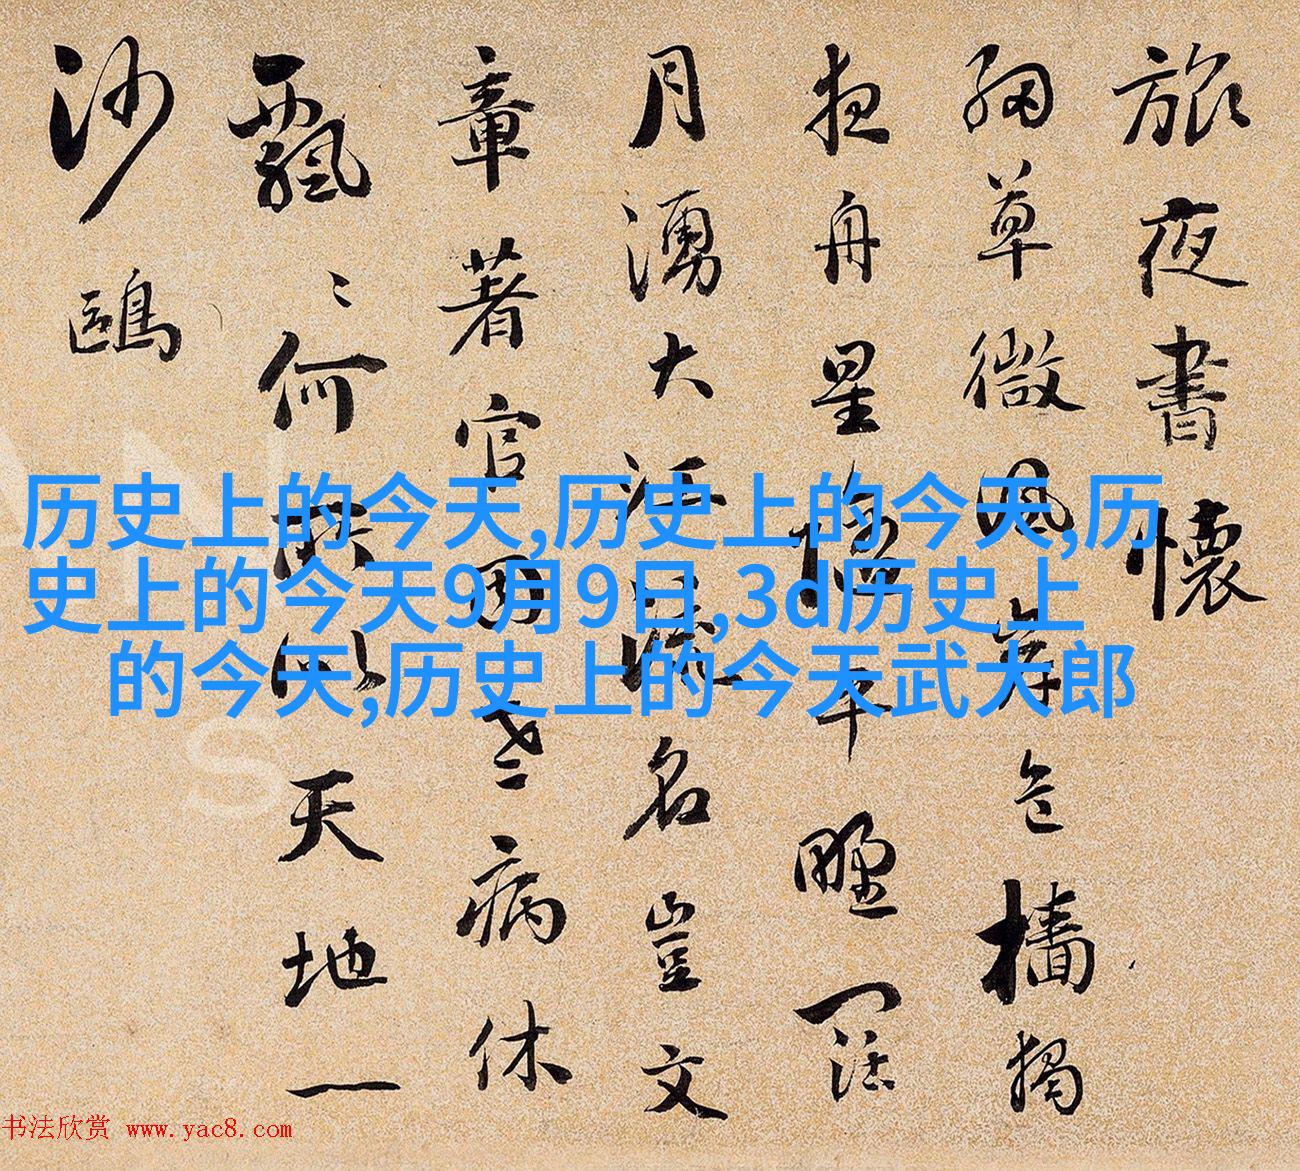 旅夜書懷
細草微風岸危檣獨
夜舟星平野闊
月湧大江流名豈文
章著官因老病休
飄〻何所似天地一
沙鷗
历史上的今天,历史上的今天,历
史上的今天9月9日,3d历史上
的今天,历史上的今天武大郎
书法欣赏 www.yac8.com